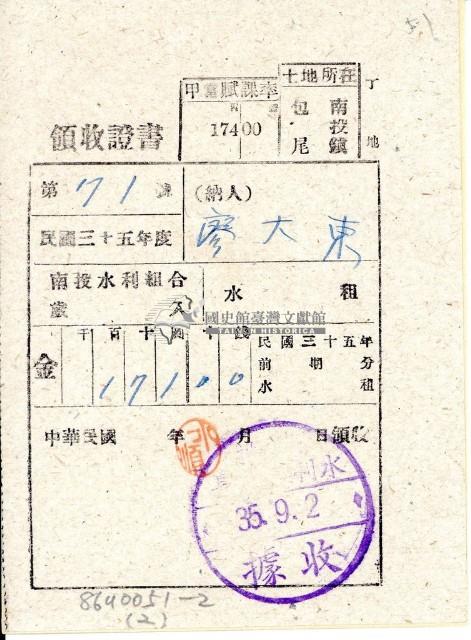 土地所在
南投鎮
包尾
丁地
甲當賦課率
17400
領收證書
第71號
(納人)
廖大東
民國三十五年度
南投水利組合
水租
歲
國史館臺灣文獻館
TAIWAN HISTORICA
千百十圓十錢
金 171.00
民國三十五年
前期分
水租
中華民國 年 月 日領收
水利
35.9.2
收據
8640051-2
(2)